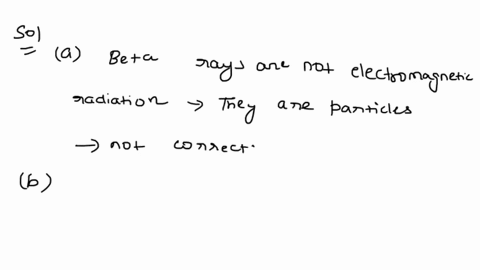 Sol
(a) Beta rays are not electromagnetic
radiation → They are particles
→ not correct.
(b)